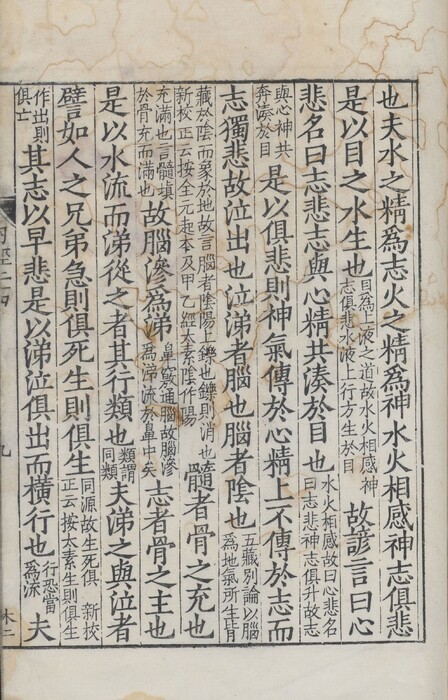 也夫水之精爲志火之精爲神水火相感神志俱悲
是以目之水生也目爲上液之道故水火相感神志俱悲水液上行方生於目故諺言曰心
悲名曰志悲志與心精共湊於目也水火相感故曰心悲名曰志悲神志俱升故志
與心神共奔湊於目是以俱悲則神氣傳於心精上不傳於志而
志獨悲故泣出也泣涕者腦也腦者陰也五藏別論以腦爲地氣所生皆
藏於陰而象於地故言腦者陰陽上鑠也鑠則消也新校正云按全元起本及甲乙經太素陰作陽髓者骨之充也
充滿也言髓填於骨充而滿也故腦滲爲涕鼻竅通腦故腦滲爲涕流於鼻中矣志者骨之主也
是以水流而涕從之者其行類也類謂同類夫涕之與泣者
譬如人之兄弟急則俱死生則俱生同源故生死俱新校正云按太素生則俱生
作出則俱亡其志以早悲是以涕泣俱出而橫行也行恐當爲流夫
九